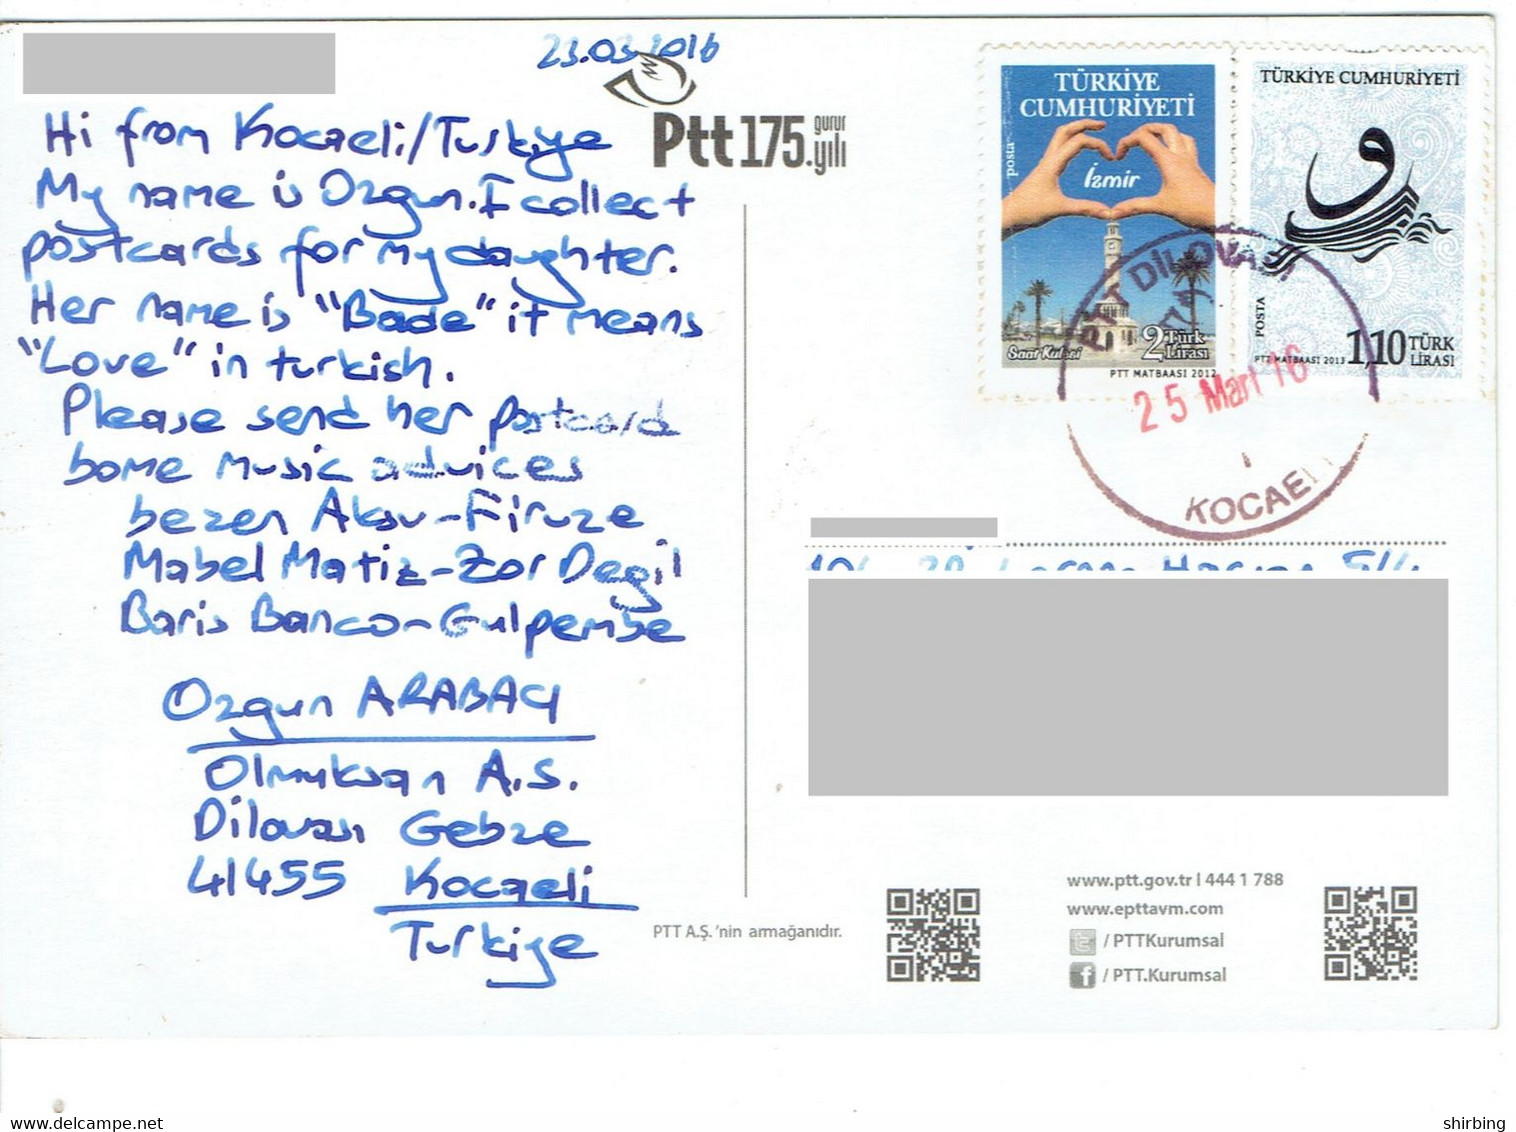 23.03.2016
Hi from Kocaeli/Turkiye
My name is Ozgun. I collect
postcards for my daughter.
Her name is "Bade" it means
"Love" in turkish.
Please send her postcard
some music advices
Sezen Aksu-Firuze
Mabel Matiz-Zor Degil
Baris Banco-Gulpembe
Ozgun ARABACI
Olmuksan A.S.
Dilovası Gebze
41455 Kocaeli
Turkiye
Ptt 175. gurur yılı
TÜRKİYE
CUMHURİYETİ
posta
İzmir
Saat Kulesi
2 Türk Lirası
PTT MATBAASI 2012
TÜRKİYE CUMHURİYETİ
و
POSTA
1,10 TÜRK LİRASI
PTT MATBAASI 2013
DİLOVASI
25 Mart 16
KOCAELİ
PTT A.Ş.'nin armağanıdır.
www.ptt.gov.tr | 444 1 788
www.epttavm.com
t / PTTKurumsal
f / PTT.Kurumsal
shirbing